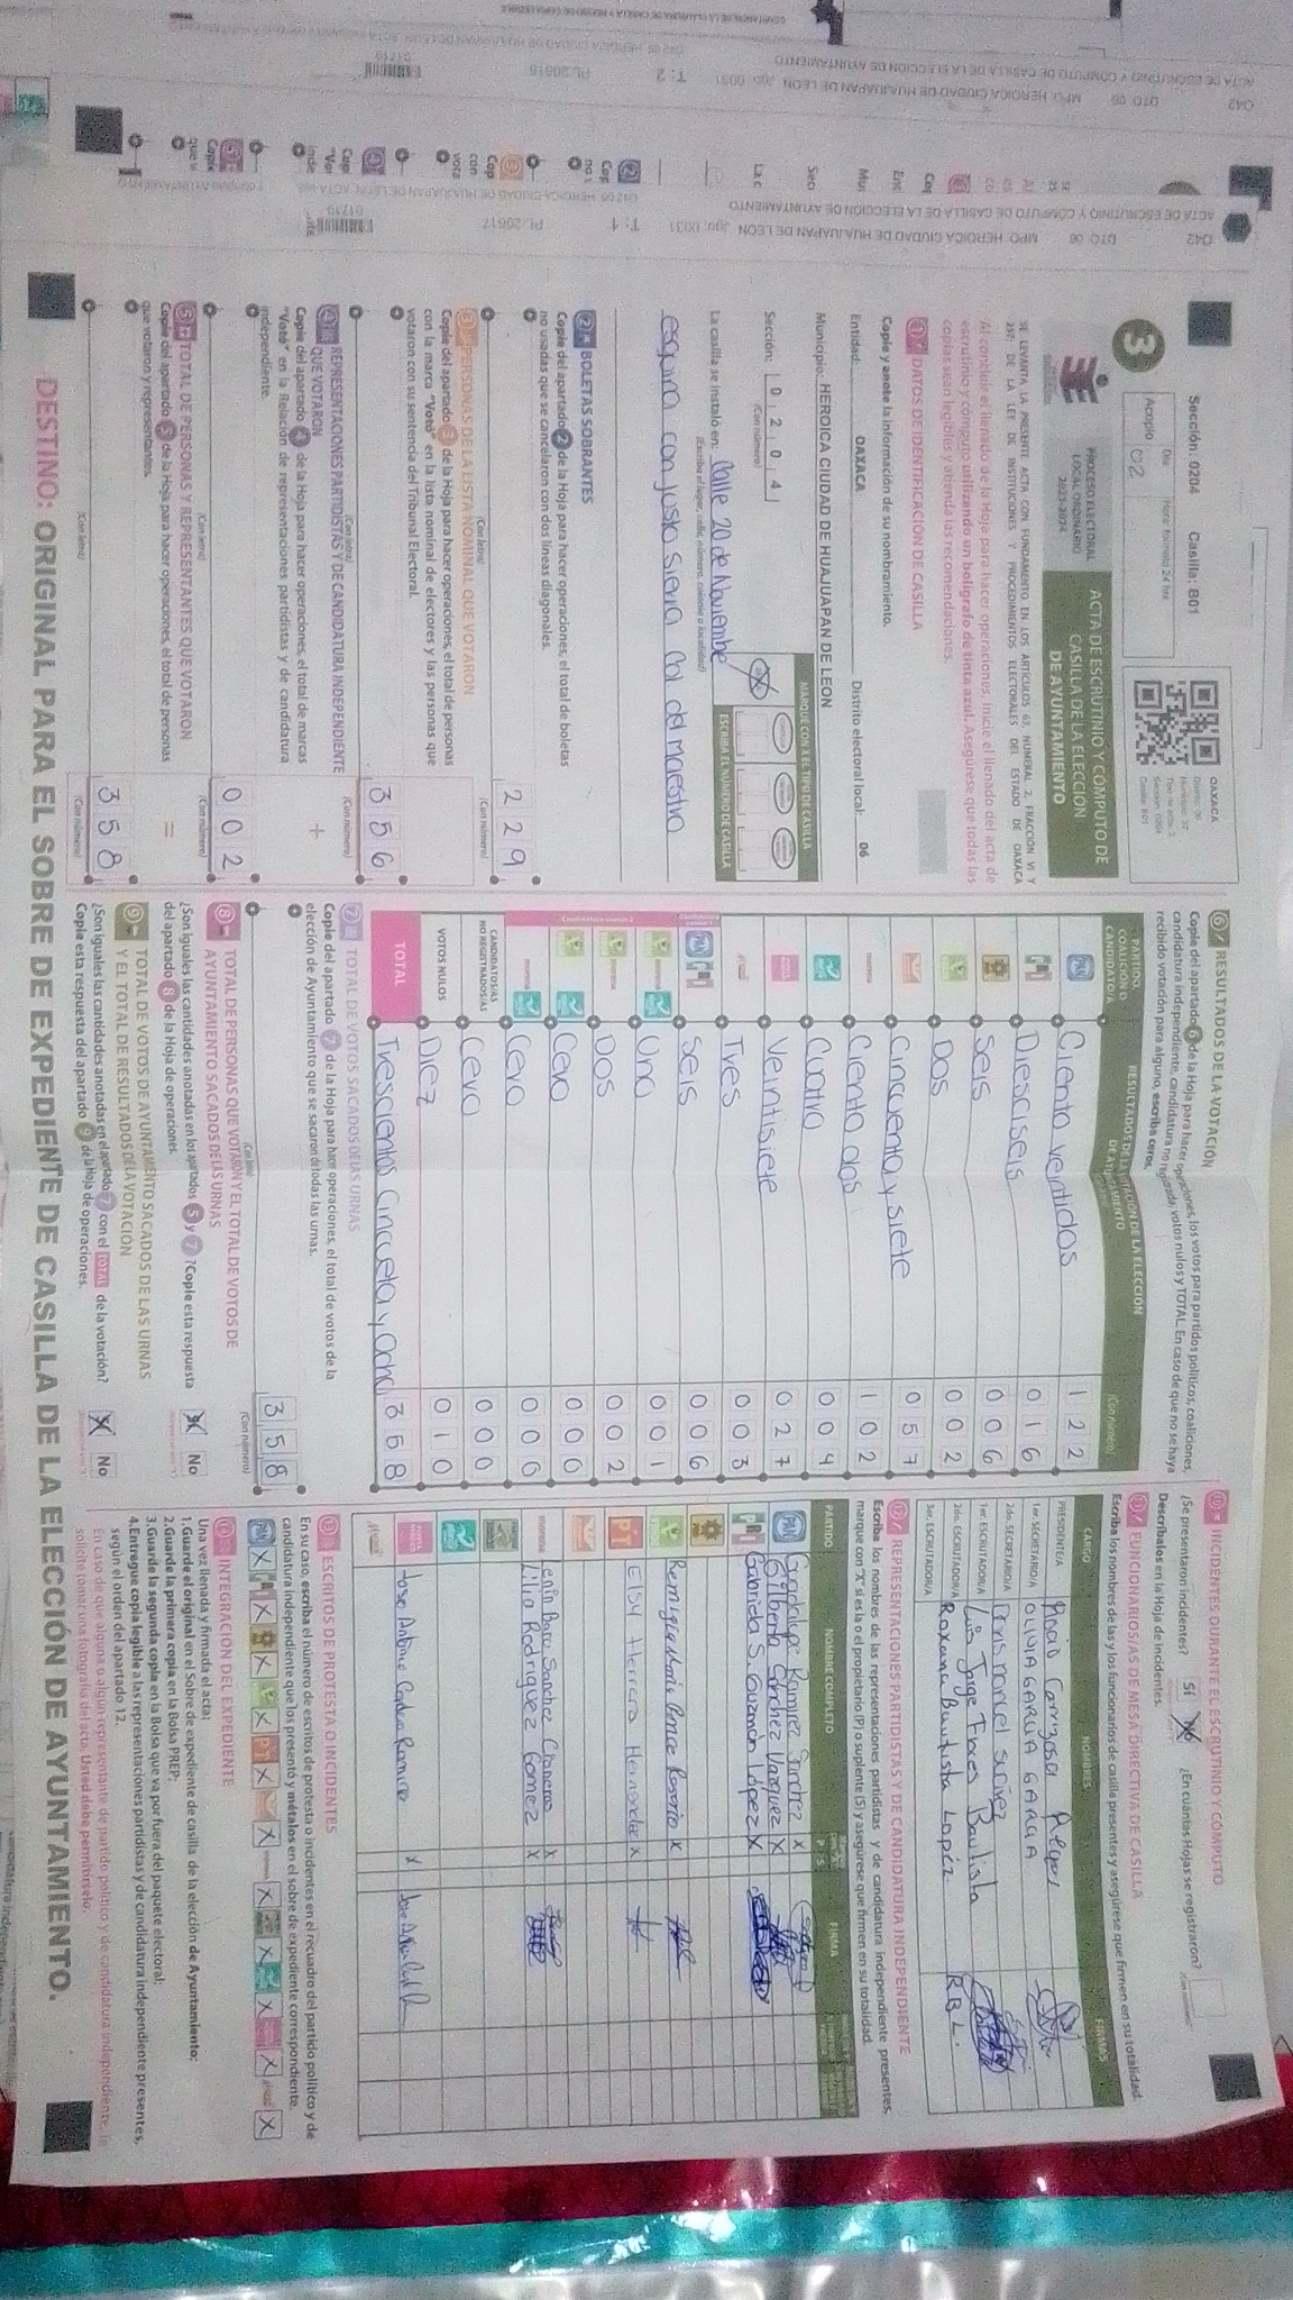 Sección: 0204 Casilla: B01
OAXACA
3
Acopio
02
PROCESO ELECTORAL
LOCAL ORDINARIO
2023-2024
ACTA DE ESCRUTINIO Y CÓMPUTO DE
CASILLA DE LA ELECCIÓN
DE AYUNTAMIENTO
SE LEVANTA LA PRESENTE ACTA CON FUNDAMENTO EN LOS ARTÍCULOS 63, NUMERAL 2, FRACCIÓN VI Y
257; DE LA LEY DE INSTITUCIONES Y PROCEDIMIENTOS ELECTORALES DEL ESTADO DE OAXACA
Al concluir el llenado de la Hoja para hacer operaciones, inicie el llenado del acta de
escrutinio y cómputo utilizando un bolígrafo de tinta azul. Asegúrese que todas las
copias sean legibles y atienda las recomendaciones.
1 DATOS DE IDENTIFICACIÓN DE CASILLA
Copie y anote la información de su nombramiento.
Entidad: OAXACA Distrito electoral local: 06
Municipio: HEROICA CIUDAD DE HUAJUAPAN DE LEON
Sección: 0 2 0 4
(Con número)
MARQUE CON X EL TIPO DE CASILLA
ESCRIBA EL NÚMERO DE CASILLA
La casilla se instaló en: Calle 20 de Noviembe
(Escriba el lugar, calle, número, colonia o localidad)
esquina con justo sierra col del maestro
2 BOLETAS SOBRANTES
Copie del apartado 2 de la Hoja para hacer operaciones, el total de boletas
no usadas que se cancelaron con dos líneas diagonales.
229
(Con letra) (Con número)
3 PERSONAS DE LA LISTA NOMINAL QUE VOTARON
Copie del apartado 3 de la Hoja para hacer operaciones, el total de personas
con la marca "Votó" en la lista nominal de electores y las personas que
votaron con su sentencia del Tribunal Electoral.
356
(Con letra) (Con número)
4 REPRESENTACIONES PARTIDISTAS Y DE CANDIDATURA INDEPENDIENTE
QUE VOTARON
+
Copie del apartado 4 de la Hoja para hacer operaciones, el total de marcas
"Votó" en la Relación de representaciones partidistas y de candidatura
independiente.
002
(Con letra) (Con número)
5 TOTAL DE PERSONAS Y REPRESENTANTES QUE VOTARON
=
Copie del apartado 5 de la Hoja para hacer operaciones, el total de personas
que votaron y representantes.
358
(Con letra) (Con número)
6 RESULTADOS DE LA VOTACIÓN
Copie del apartado 6 de la Hoja para hacer operaciones, los votos para partidos políticos, coaliciones,
candidatura independiente, candidatura no registrada, votos nulos y TOTAL. En caso de que no se haya
recibido votación para alguno, escriba ceros.
PARTIDO,
COALICIÓN O
CANDIDATO/A
RESULTADOS DE LA VOTACIÓN DE LA ELECCIÓN
DE AYUNTAMIENTO
(Con número)
PAN Ciento ventidos 122
PRI Diesciseis 016
Seis 006
Dos 002
Cincuenta y siete 057
morena Ciento dos 102
Cuatro 004
Veintisiete 027
Tres 003
PAN PRI Seis 006
Una 001
Dos 002
Cero 000
Cero 000
CANDIDATOS/AS
NO REGISTRADOS/AS
Cero 000
VOTOS NULOS Diez 010
TOTAL Trescientos Cincueta y Ocho 358
7 TOTAL DE VOTOS SACADOS DE LAS URNAS
Copie del apartado 7 de la Hoja para hacer operaciones, el total de votos de la
elección de Ayuntamiento que se sacaron de todas las urnas.
358
(Con letra) (Con número)
8 TOTAL DE PERSONAS QUE VOTARON Y EL TOTAL DE VOTOS DE
AYUNTAMIENTO SACADOS DE LAS URNAS
¿Son iguales las cantidades anotadas en los apartados 5 y 7? Copie esta respuesta
del apartado 8 de la Hoja de operaciones.
No
9 TOTAL DE VOTOS DE AYUNTAMIENTO SACADOS DE LAS URNAS
Y EL TOTAL DE RESULTADOS DE LA VOTACIÓN
¿Son iguales las cantidades anotadas en el apartado 7 con el TOTAL de la votación?
Copie esta respuesta del apartado 9 de la Hoja de operaciones.
No
10 INCIDENTES DURANTE EL ESCRUTINIO Y CÓMPUTO
¿Se presentaron incidentes? Sí No ¿En cuántas Hojas se registraron?
Descríbalos en la Hoja de Incidentes.
11 FUNCIONARIOS/AS DE MESA DIRECTIVA DE CASILLA
Escriba los nombres de las y los funcionarios de casilla presentes y asegúrese que firmen en su totalidad.
CARGO NOMBRES FIRMAS
PRESIDENTE/A Rocio Carrizosa
1er. SECRETARIO/A OLIVIA GARCIA GARCIA
2do. SECRETARIO/A
1er. ESCRUTADOR/A Luis Jorge Flores Bautista
2do. ESCRUTADOR/A Roxana Bautista Lopéz R.B.L.
3er. ESCRUTADOR/A
12 REPRESENTACIONES PARTIDISTAS Y DE CANDIDATURA INDEPENDIENTE
Escriba los nombres de las representaciones partidistas y de candidatura independiente presentes,
marque con "X" si es la o el propietario (P) o suplente (S) y asegúrese que firmen en su totalidad.
PARTIDO NOMBRE COMPLETO P S FIRMA
PAN Guadalupe Ramirez Sanchez X
Gilberta Sánchez Vazquez X
PRI Gabriela S. Guzmán López X
X
PT Elsy Herrera Hernandez X
morena Lenin Sanchez Cisneros X
Lilia Rodriguez Gomez X
Jose Antonio Cordova Ramirez X
13 ESCRITOS DE PROTESTA O INCIDENTES
En su caso, escriba el número de escritos de protesta o incidentes en el recuadro del partido político y de
candidatura independiente que los presentó y métalos en el sobre de expediente correspondiente.
X X X X X X X X X X X
INTEGRACIÓN DEL EXPEDIENTE
Una vez llenada y firmada el acta:
1.Guarde el original en el Sobre de expediente de casilla de la elección de Ayuntamiento;
2.Guarde la primera copia en la Bolsa PREP;
3.Guarde la segunda copia en la Bolsa que va por fuera del paquete electoral;
4.Entregue copia legible a las representaciones partidistas y de candidatura independiente presentes,
según el orden del apartado 12.
En caso de que alguna o algún representante de partido político y de candidatura independiente, le
solicite tomar una fotografía del acta. Usted debe permitírselo.
DESTINO: ORIGINAL PARA EL SOBRE DE EXPEDIENTE DE CASILLA DE LA ELECCIÓN DE AYUNTAMIENTO.
042 DTO: 06 MPO: HEROICA CIUDAD DE HUAJUAPAN DE LEON
ACTA DE ESCRUTINIO Y CÓMPUTO DE CASILLA DE LA ELECCIÓN DE AYUNTAMIENTO
T: 1 PL:20617
01719
042 DTO: 06 MPO: HEROICA CIUDAD DE HUAJUAPAN DE LEON
ACTA DE ESCRUTINIO Y CÓMPUTO DE CASILLA DE LA ELECCIÓN DE AYUNTAMIENTO
T: 2
01719